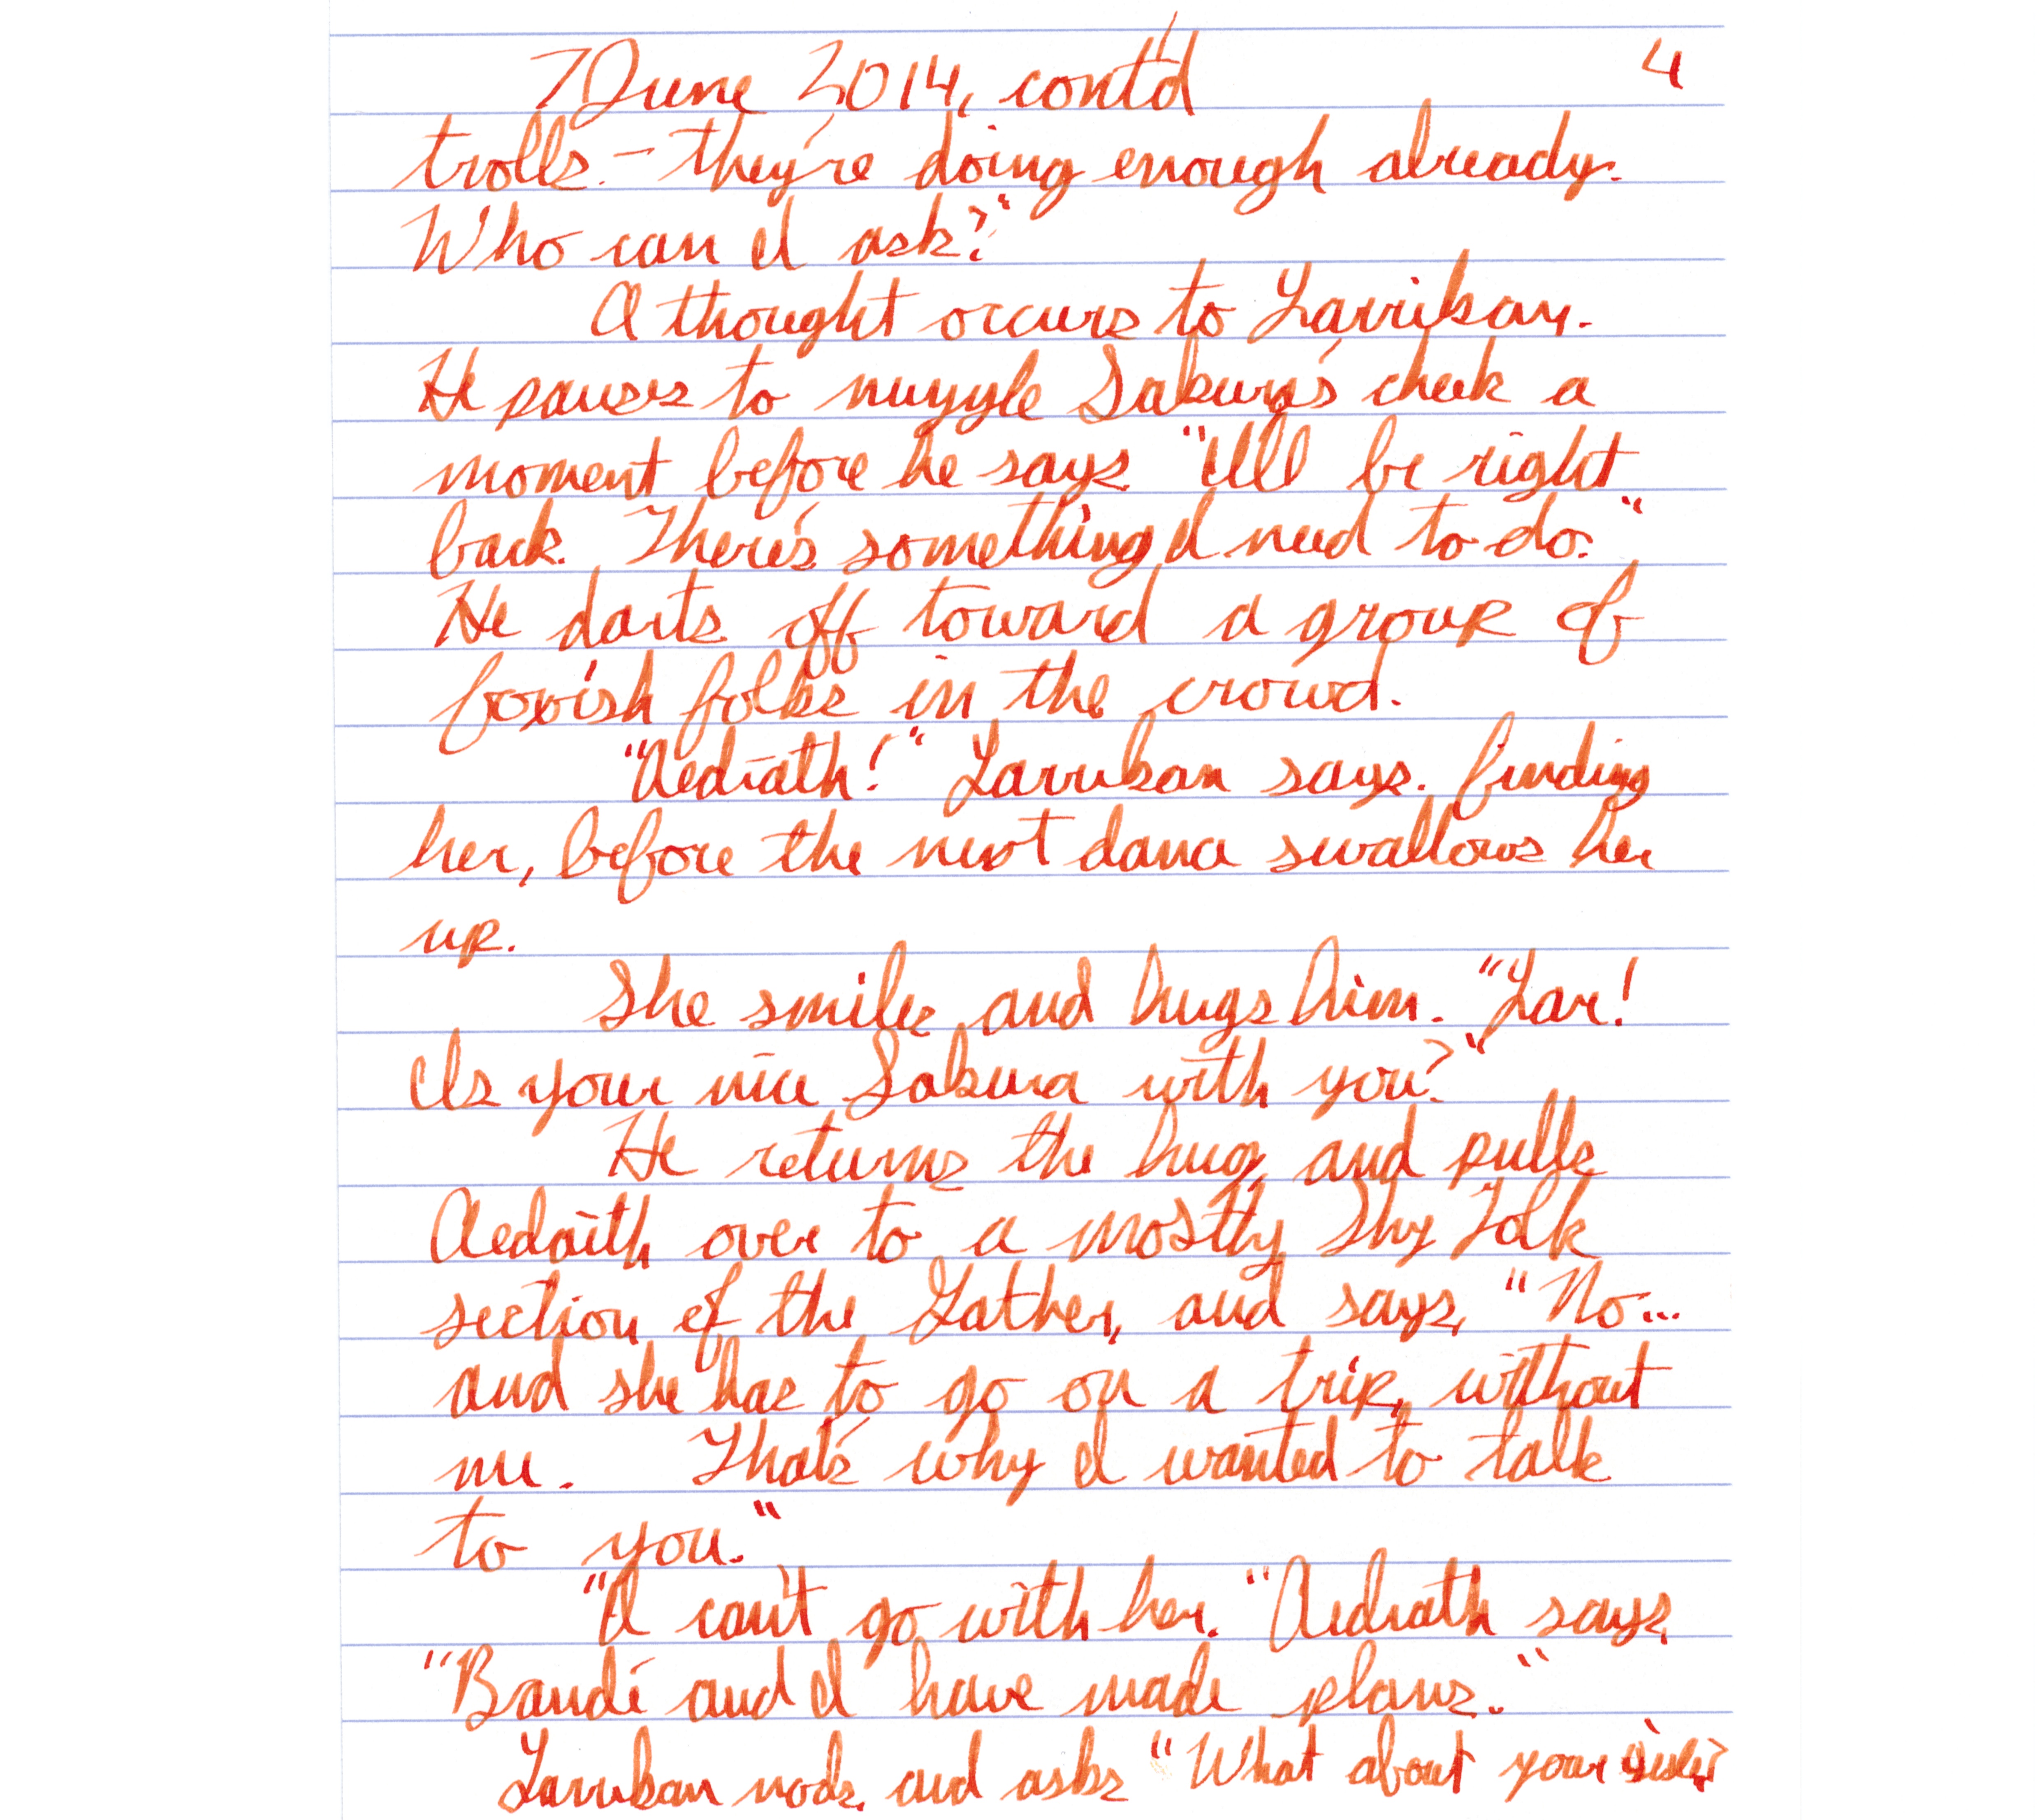 7 June 2014, cont'd 4
trolls. – they're doing enough already.
Who can I ask?"
A thought occurs to Larrikan.
He pauses to nuzzle Sakura's cheek a
moment before he says "I'll be right
back. There's something I need to do."
He darts off toward a group of
foxish folks in the crowd.
"Aedraith!" Larrikan says. finding
her, before the next dance swallows her
up.
She smiles and hugs him. "Lar!
Is your nice Sakura with you?"
He returns the hug, and pulls
Aedraith over to a mostly Shy Folk
section of the Gather, and says, "No...
and she has to go on a trip, without
me. That's why I wanted to talk
to you."
"I can't go with her." Aedraith says,
"Bandi and I have made plans."
Larrikan nods, and asks "What about your sister?